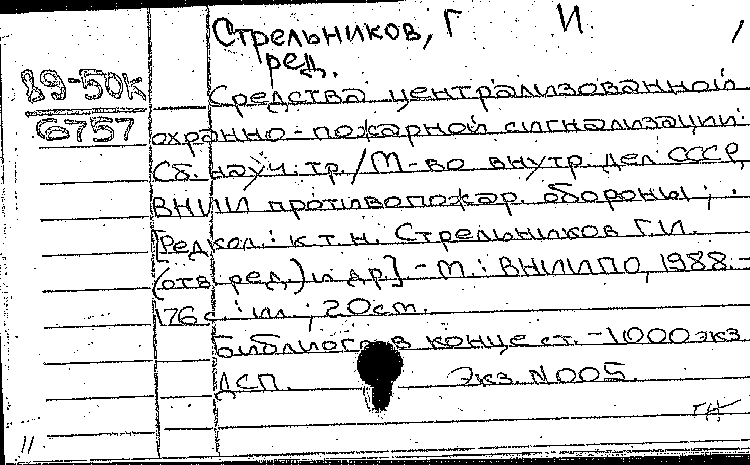 Стрельников, Г И
ред.
89-50к
6757
Средства централизованной
охранно-пожарной сигнализации:
Сб. науч. тр./М-во внутр. дел СССР,
ВНИИ противопожар. обороны;
[Редкол.: к.т.н. Стрельников Г.И.
(отв. ред.) и др.] - М.: ВНИИПО, 1988. -
176 с.: ил.; 20 см.
Библиогр. в конце ст. - 1000 экз.
ДСП. Экз. N 005.
11